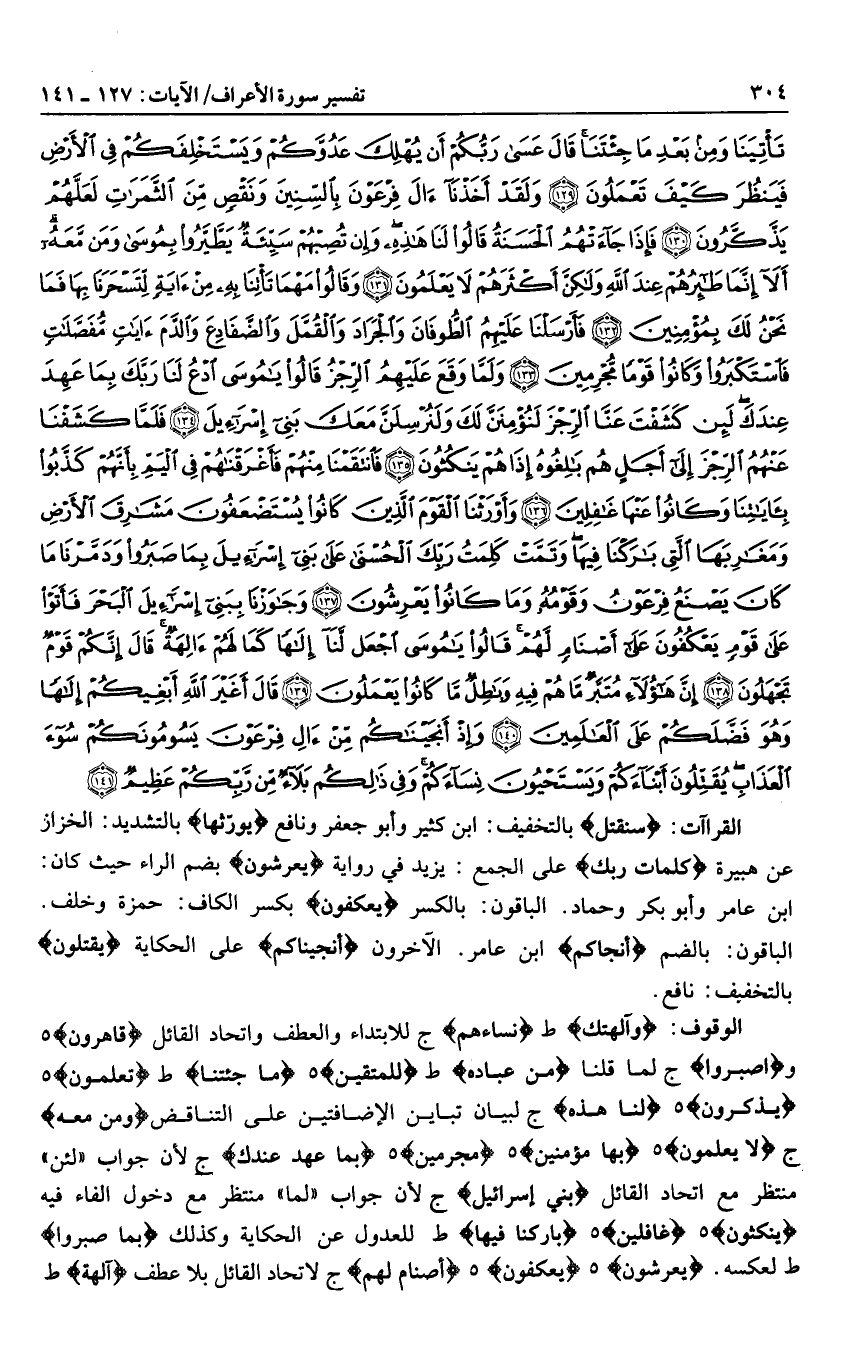 ٣٠٤ تفسير سورة الأعراف/ الآيات: ١٢٧ - ١٤١
تَأْتِيَنَا وَمِنْ بَعْدِ مَا جِئْتَنَا قَالَ عَسَى رَبُّكُمْ أَن يُهْلِكَ عَدُوَّكُمْ وَيَسْتَخْلِفَكُمْ فِي الْأَرْضِ
فَيَنظُرَ كَيْفَ تَعْمَلُونَ ﴿١٢٩﴾ وَلَقَدْ أَخَذْنَا ءَالَ فِرْعَوْنَ بِالسِّنِينَ وَنَقْصٍ مِّنَ الثَّمَرَاتِ لَعَلَّهُمْ
يَذَّكَّرُونَ ﴿١٣٠﴾ فَإِذَا جَآءَتْهُمُ الْحَسَنَةُ قَالُوا لَنَا هَذِهِ وَإِن تُصِبْهُمْ سَيِّئَةٌ يَطَّيَّرُوا بِمُوسَى وَمَن مَّعَهُ
أَلَآ إِنَّمَا طَائِرُهُمْ عِندَ اللَّهِ وَلَكِنَّ أَكْثَرَهُمْ لَا يَعْلَمُونَ ﴿١٣١﴾ وَقَالُوا مَهْمَا تَأْتِنَا بِهِ مِنْ ءَايَةٍ لِّتَسْحَرَنَا بِهَا فَمَا
نَحْنُ لَكَ بِمُؤْمِنِينَ ﴿١٣٢﴾ فَأَرْسَلْنَا عَلَيْهِمُ الطُّوفَانَ وَالْجَرَادَ وَالْقُمَّلَ وَالضَّفَادِعَ وَالدَّمَ ءَايَاتٍ مُّفَصَّلَاتٍ
فَاسْتَكْبَرُوا وَكَانُوا قَوْمًا مُّجْرِمِينَ ﴿١٣٣﴾ وَلَمَّا وَقَعَ عَلَيْهِمُ الرِّجْزُ قَالُوا يَامُوسَى ادْعُ لَنَا رَبَّكَ بِمَا عَهِدَ
عِندَكَ لَئِن كَشَفْتَ عَنَّا الرِّجْزَ لَنُؤْمِنَنَّ لَكَ وَلَنُرْسِلَنَّ مَعَكَ بَنِي إِسْرَاءِيلَ ﴿١٣٤﴾ فَلَمَّا كَشَفْنَا
عَنْهُمُ الرِّجْزَ إِلَى أَجَلٍ هُم بَالِغُوهُ إِذَا هُمْ يَنكُثُونَ ﴿١٣٥﴾ فَانتَقَمْنَا مِنْهُمْ فَأَغْرَقْنَاهُمْ فِي الْيَمِّ بِأَنَّهُمْ كَذَّبُوا
بِـَٔايَاتِنَا وَكَانُوا عَنْهَا غَافِلِينَ ﴿١٣٦﴾ وَأَوْرَثْنَا الْقَوْمَ الَّذِينَ كَانُوا يُسْتَضْعَفُونَ مَشَارِقَ الْأَرْضِ
وَمَغَارِبَهَا الَّتِي بَارَكْنَا فِيهَا وَتَمَّتْ كَلِمَتُ رَبِّكَ الْحُسْنَى عَلَى بَنِي إِسْرَاءِيلَ بِمَا صَبَرُوا وَدَمَّرْنَا مَا
كَانَ يَصْنَعُ فِرْعَوْنُ وَقَوْمُهُ وَمَا كَانُوا يَعْرِشُونَ ﴿١٣٧﴾ وَجَاوَزْنَا بِبَنِي إِسْرَاءِيلَ الْبَحْرَ فَأَتَوْا
عَلَى قَوْمٍ يَعْكُفُونَ عَلَى أَصْنَامٍ لَّهُمْ قَالُوا يَامُوسَى اجْعَل لَّنَا إِلَهًا كَمَا لَهُمْ ءَالِهَةٌ قَالَ إِنَّكُمْ قَوْمٌ
تَجْهَلُونَ ﴿١٣٨﴾ إِنَّ هَؤُلَاءِ مُتَبَّرٌ مَّا هُمْ فِيهِ وَبَاطِلٌ مَّا كَانُوا يَعْمَلُونَ ﴿١٣٩﴾ قَالَ أَغَيْرَ اللَّهِ أَبْغِيكُمْ إِلَهًا
وَهُوَ فَضَّلَكُمْ عَلَى الْعَالَمِينَ ﴿١٤٠﴾ وَإِذْ أَنجَيْنَاكُم مِّنْ ءَالِ فِرْعَوْنَ يَسُومُونَكُمْ سُوءَ
الْعَذَابِ يُقَتِّلُونَ أَبْنَاءَكُمْ وَيَسْتَحْيُونَ نِسَاءَكُمْ وَفِي ذَالِكُم بَلَاءٌ مِّن رَّبِّكُمْ عَظِيمٌ ﴿١٤١﴾
القراآت: ﴿سنقتل﴾ بالتخفيف: ابن كثير وأبو جعفر ونافع ﴿يورّثها﴾ بالتشديد: الخزاز
عن هبيرة ﴿كلمات ربك﴾ على الجمع : يزيد في رواية ﴿يعرشون﴾ بضم الراء حيث كان:
ابن عامر وأبو بكر وحماد. الباقون: بالكسر ﴿يعكفون﴾ بكسر الكاف: حمزة وخلف.
الباقون: بالضم ﴿أنجاكم﴾ ابن عامر. الآخرون ﴿أنجيناكم﴾ على الحكاية ﴿يقتلون﴾
بالتخفيف: نافع.
الوقوف: ﴿وآلهتك﴾ ط ﴿نساءهم﴾ ج للابتداء والعطف واتحاد القائل ﴿قاهرون﴾٥
و﴿اصبروا﴾ ج لما قلنا ﴿من عباده﴾ ط ﴿للمتقين﴾٥ ﴿ما جئتنا﴾ ط ﴿تعلمون﴾٥
﴿يذكرون﴾٥ ﴿لنا هذه﴾ ج لبيان تباين الإضافتين على التناقض ﴿ومن معه﴾
ج ﴿لا يعلمون﴾٥ ﴿بها مؤمنين﴾٥ ﴿مجرمين﴾٥ ﴿بما عهد عندك﴾ ج لأن جواب «لئن»
منتظر مع اتحاد القائل ﴿بني إسرائيل﴾ ج لأن جواب «لما» منتظر مع دخول الفاء فيه
﴿ينكثون﴾٥ ﴿غافلين﴾٥ ﴿باركنا فيها﴾ ط للعدول عن الحكاية وكذلك ﴿بما صبروا﴾
ط لعكسه. ﴿يعرشون﴾ ٥ ﴿يعكفون﴾ ٥ ﴿أصنام لهم﴾ ج لاتحاد القائل بلا عطف ﴿آلهة﴾ ط